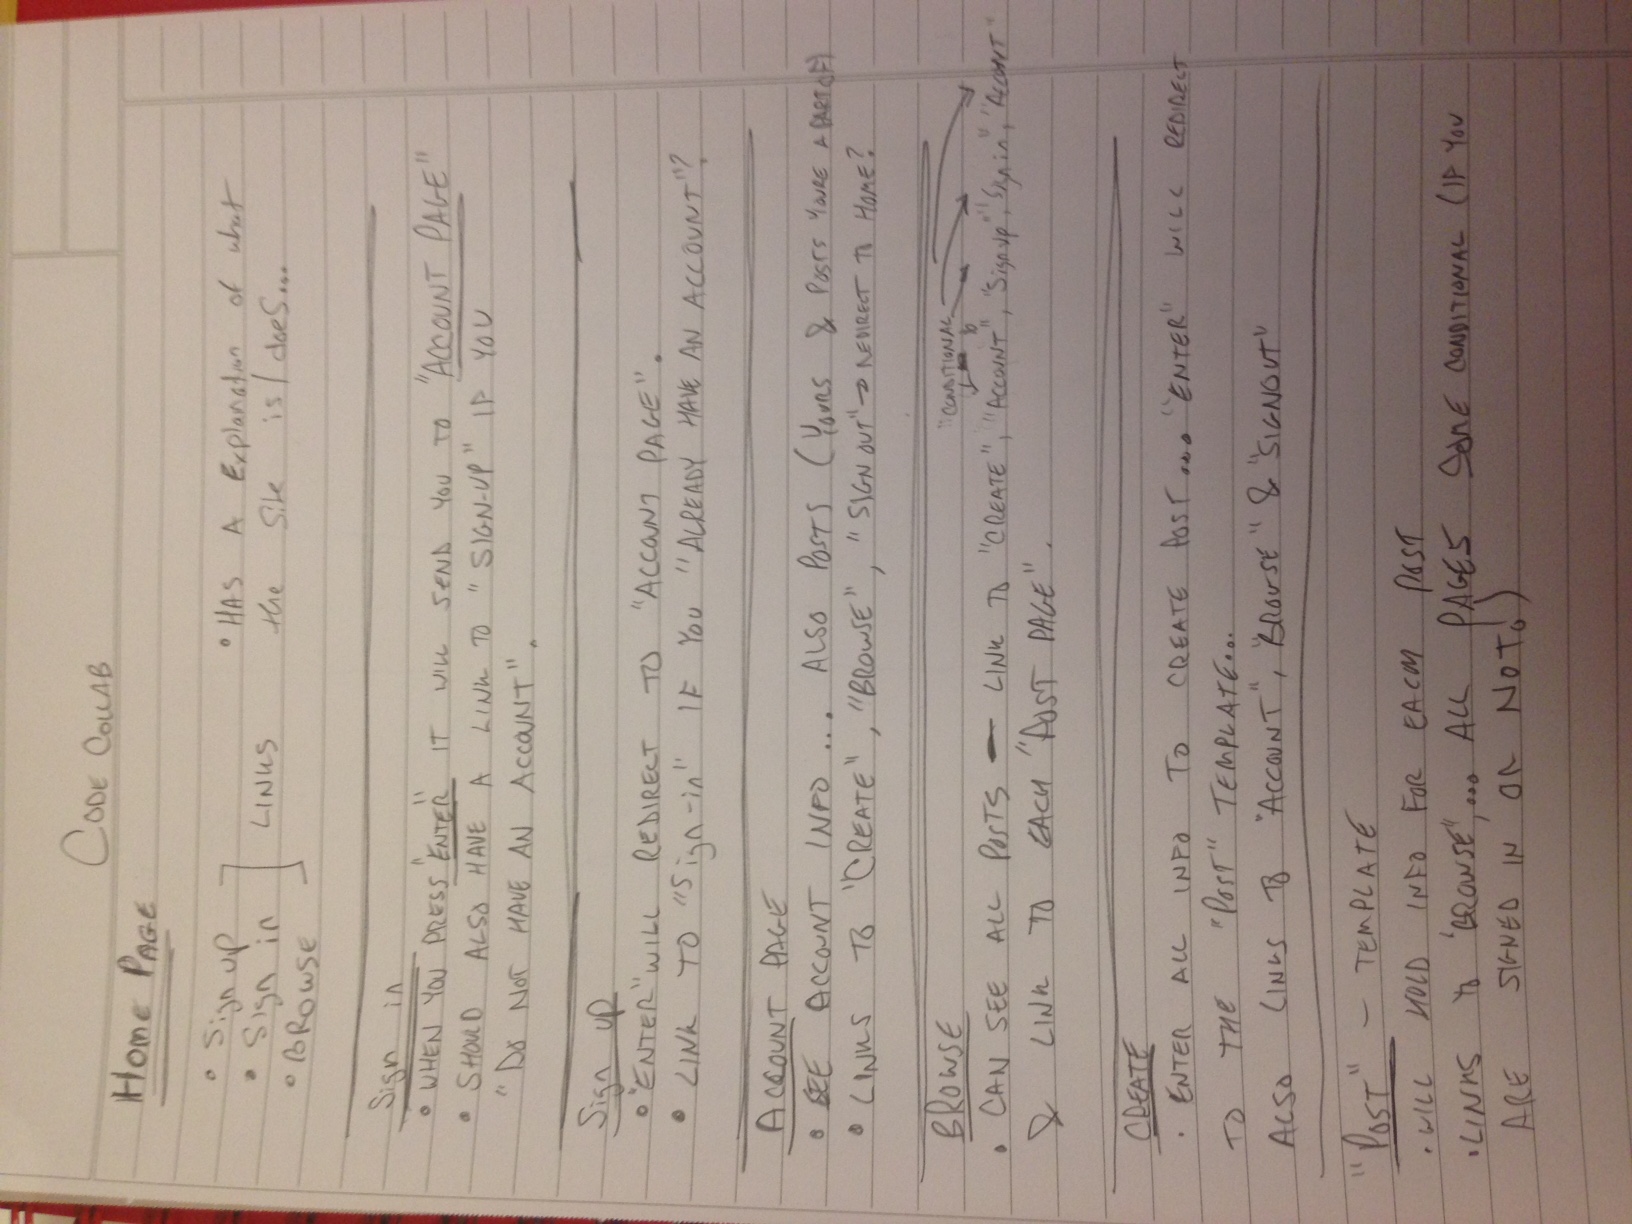 CODE COLLAB
Home PAGE
• Sign up
• Sign in
• BROWSE
LINKS
• HAS A Explanation of what
the Site is/does...
Sign in
• WHEN YOU PRESS "ENTER" IT WILL SEND YOU TO "ACCOUNT PAGE"
• SHOULD ALSO HAVE A LINK TO "SIGN-UP" IF YOU
"DO NOT HAVE AN ACCOUNT".
Sign up
• "ENTER" WILL REDIRECT TO "ACCOUNT PAGE".
• LINK TO "Sign-in" IF YOU "ALREADY HAVE AN ACCOUNT"?
ACCOUNT PAGE
• SEE ACCOUNT INFO ... ALSO POSTS (YOURS & POSTS YOURE A PART OF)
• LINKS TO "CREATE", "BROWSE", "SIGN OUT" → REDIRECT TO HOME?
BROWSE
"CONDITIONAL
• CAN SEE ALL POSTS — LINK TO "CREATE", "ACCOUNT", "Sign up", "Sign in", "ACCOUNT"
& LINK TO EACH "POST PAGE".
CREATE
• ENTER ALL INFO TO CREATE POST... "ENTER" WILL REDIRECT
TO THE "POST" TEMPLATE...
ALSO LINKS TO "ACCOUNT", "BROWSE" & "SIGNOUT"
"POST" — TEMPLATE
• WILL HOLD INFO FOR EACH POST
• LINKS TO "BROWSE", ... ALL PAGES SOME CONDITIONAL (IF YOU
ARE SIGNED IN OR NOT.)